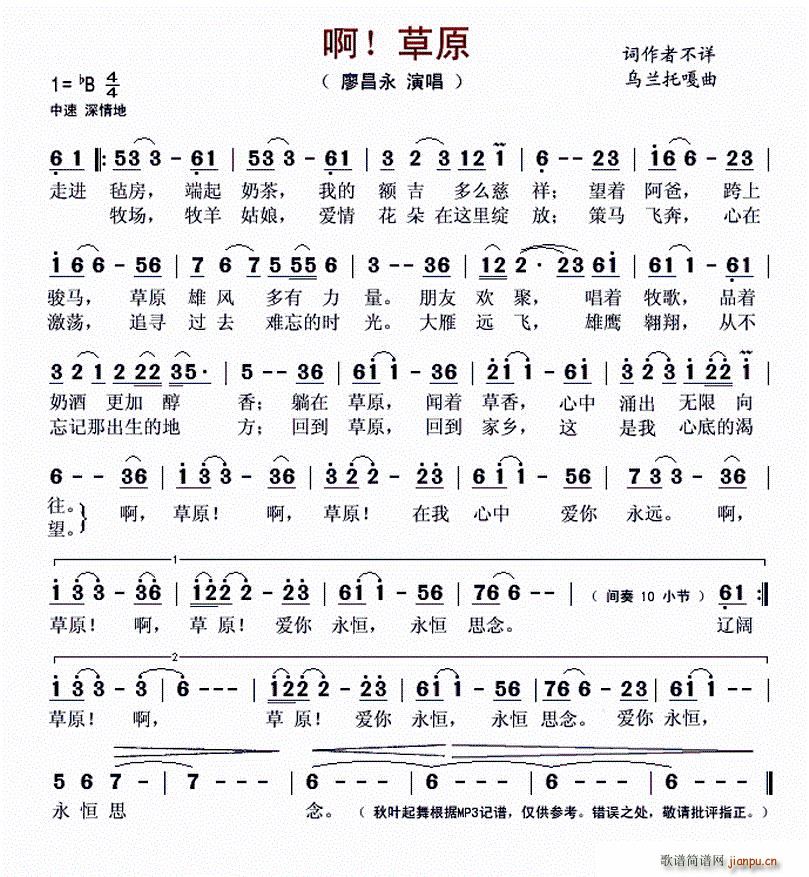 啊！草原
（ 廖昌永 演唱 ）
词作者不详
乌兰托嘎曲
1= ♭B 4/4
中速 深情地
6 1 ‖: 53 3 - 61 | 53 3 - 61 | 3 2 3 12 1 | 6 - - 23 | 16 6 - 23 |
走进 毡房， 端起 奶茶， 我的 额吉 多么慈 祥； 望着 阿爸， 跨上
牧场， 牧羊 姑娘， 爱情 花 朵 在这里绽 放； 策马 飞奔， 心在
1 6 6 - 56 | 7 6 7 5 55 6 | 3 - - 36 | 12 2· 23 61 | 61 1 - 61 |
骏马， 草原 雄 风 多有 力 量。 朋友 欢 聚， 唱着 牧歌， 品着
激荡， 追寻 过 去 难忘的时 光。 大雁 远 飞， 雄鹰 翱翔， 从不
3 2 1 2 22 35· | 5 - - 36 | 61 1 - 36 | 21 1 - 61 | 3 2 3 1 22 1 |
奶酒 更加 醇 香； 躺在 草原， 闻着 草香， 心中 涌出 无限 向
忘记那出生的地 方； 回到 草原， 回到 家乡， 这 是我 心底的渴
6 - - 36 | 1 3 3 - 36 | 3 2 2 - 23 | 6 1 1 - 56 | 7 3 3 - 36 |
往。
望。
啊， 草原！ 啊， 草原！ 在我 心中 爱你 永远。 啊，
1
1 3 3 - 36 | 122 2 - 23 | 61 1 - 56 | 76 6 - - | （ 间奏 10 小节 ） 61 :‖
草原！ 啊， 草 原！ 爱你 永恒， 永恒 思念。 辽阔
2
1 3 3 - 3 | 6 - - - | 122 2 - 23 | 61 1 - 56 | 76 6 - 23 | 61 1 - - |
草原！ 啊， 草 原！ 爱你 永恒， 永恒 思念。 爱你 永恒，
5 6 7 - | 7 - - - | 6 - - - | 6 - - - | 6 - - - | 6 - - - ‖
永 恒 思 念。 （ 秋叶起舞根据MP3记谱，仅供参考。错误之处，敬请批评指正。）
歌谱简谱网
jianpu.cn